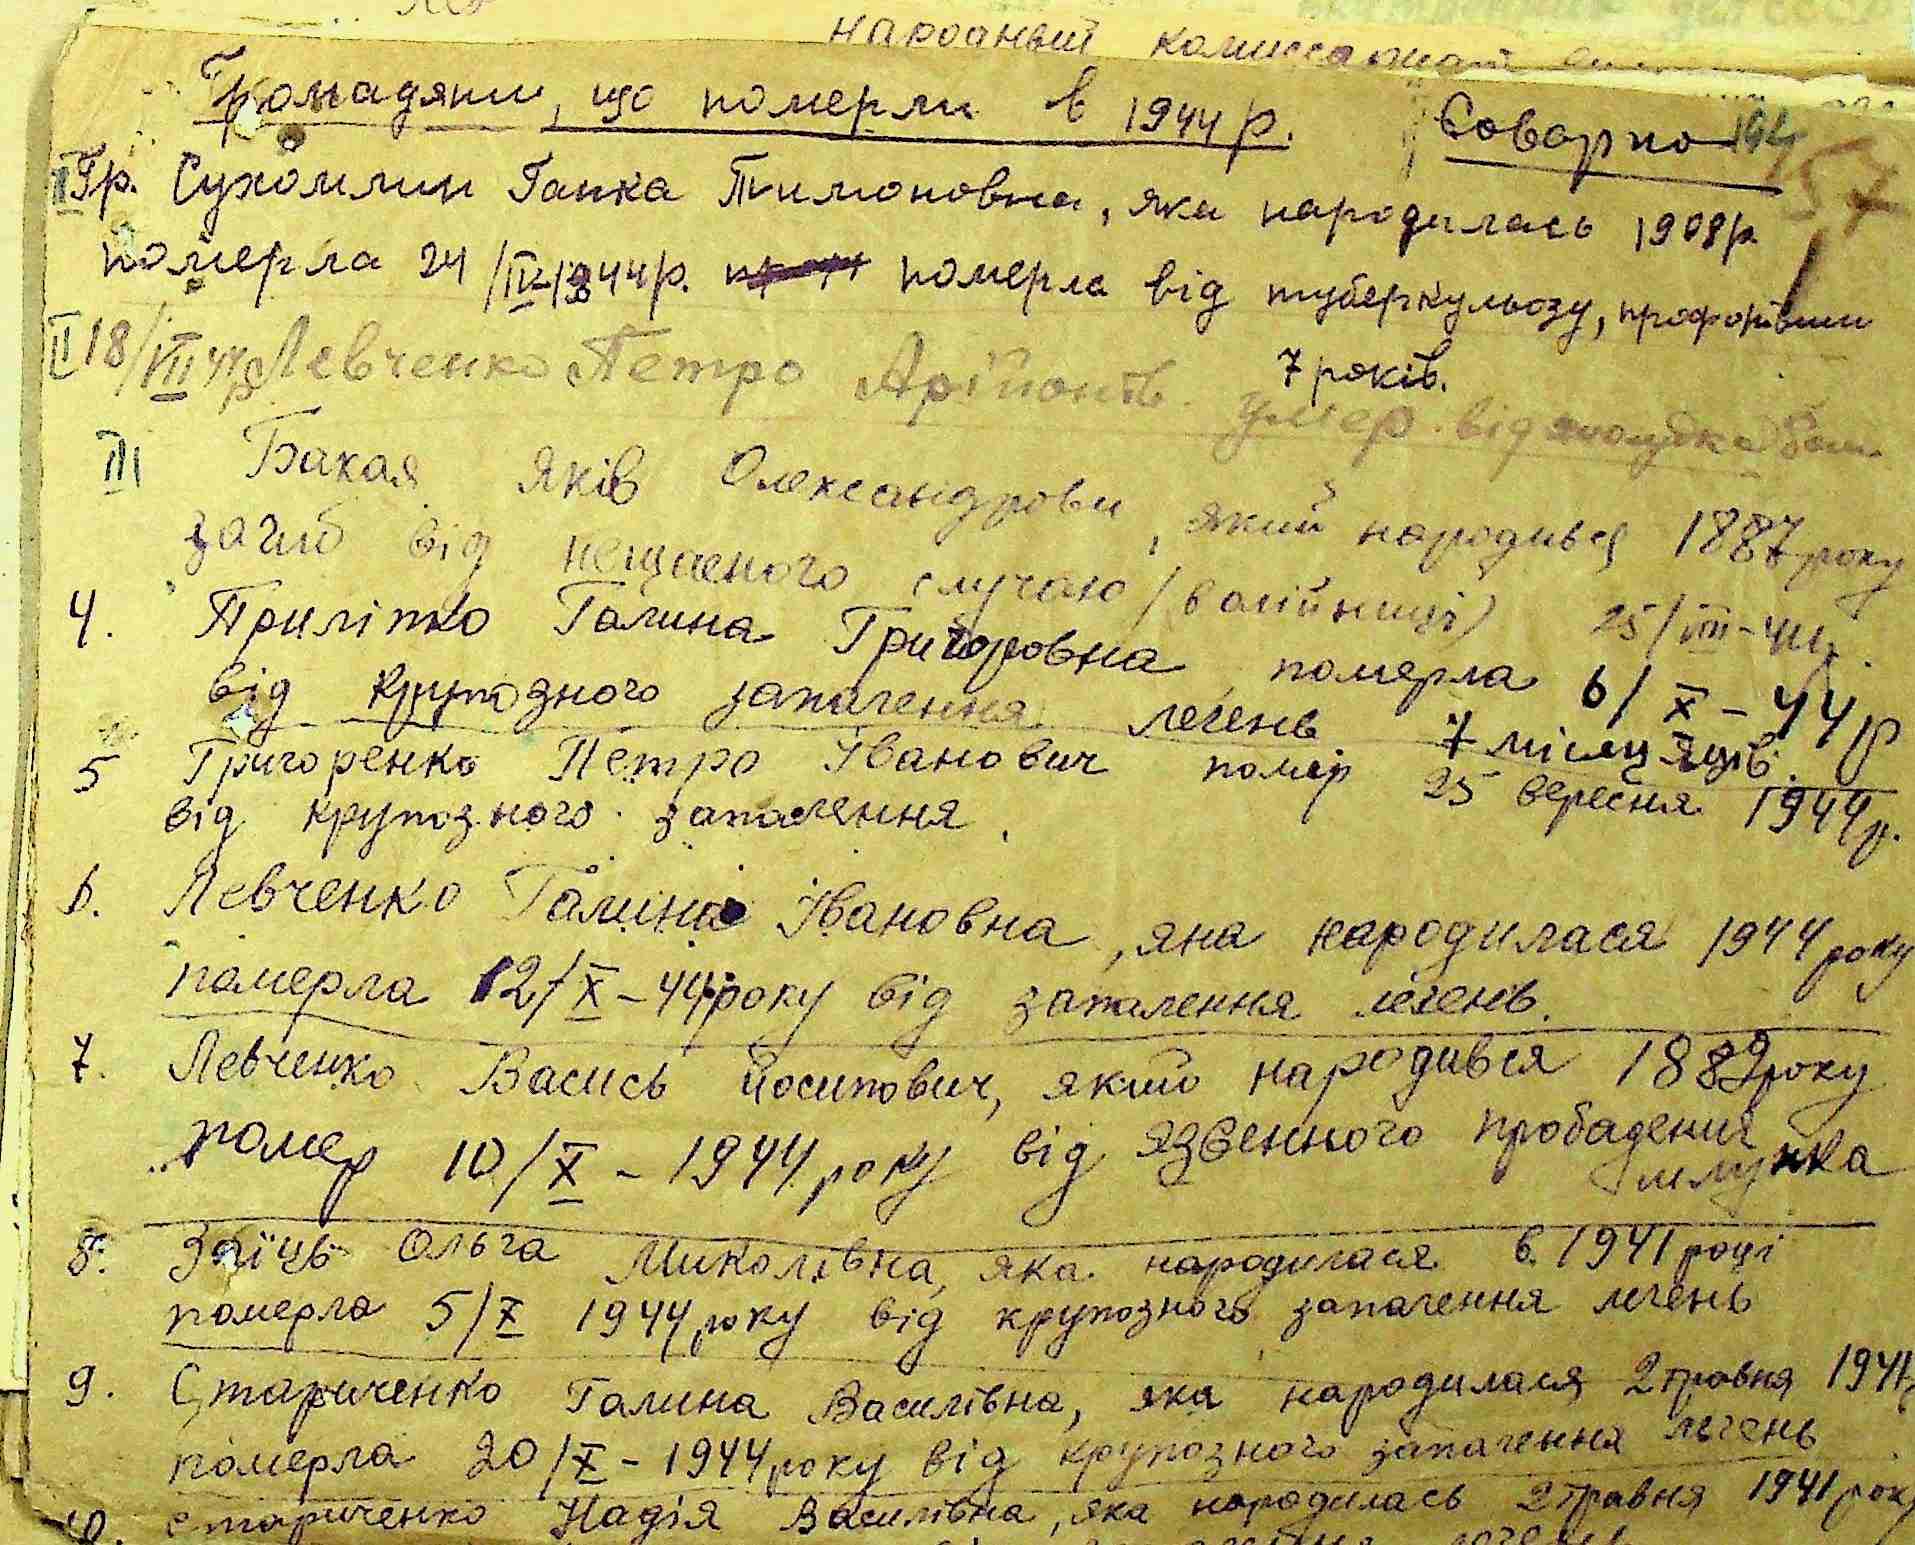 Народный комиссариат
Громадяни, що померли в 1944 р. Соварно
I Гр. Сухомлин Ганка Тимоновна, яка народилась 1908 р.
померла 24/IV 1944 р. померла від туберкульозу, профорівши
7 років.
II 18/VIII 44 р Левченко Петро умер від
III Бакая Яків Олександрови, який народився 1887 року
загиб від нещасного случаю (в олійниці) 25/VIII-44 р.
4. Приліпко Галина Григоровна померла 6/X-44 р
від крупозного запалення легень 7 місяцяців.
5 Григоренко Петро Іванович помер 25 вересня 1944 р.
від крупозного запалення.
6. Левченко Галина Івановна, яка народилася 1944 року
померла 12/X-44 року від запалення легень.
7. Левченко Васись Йосипович, який народився 1889 року
помер 10/X-1944 року від язвенного пробадения
шлунка
8. Ольга Миколівна, яка народилася в 1941 році
померла 5/X 1944 року від крупозного запалення легень
9. Стариченко Галина Василівна, яка народилася 2 травня 1941
померла 20/X-1944 року від крупозного запалення легень
10. Стариченко Надія Василівна, яка народилась 2 травня 1941 року